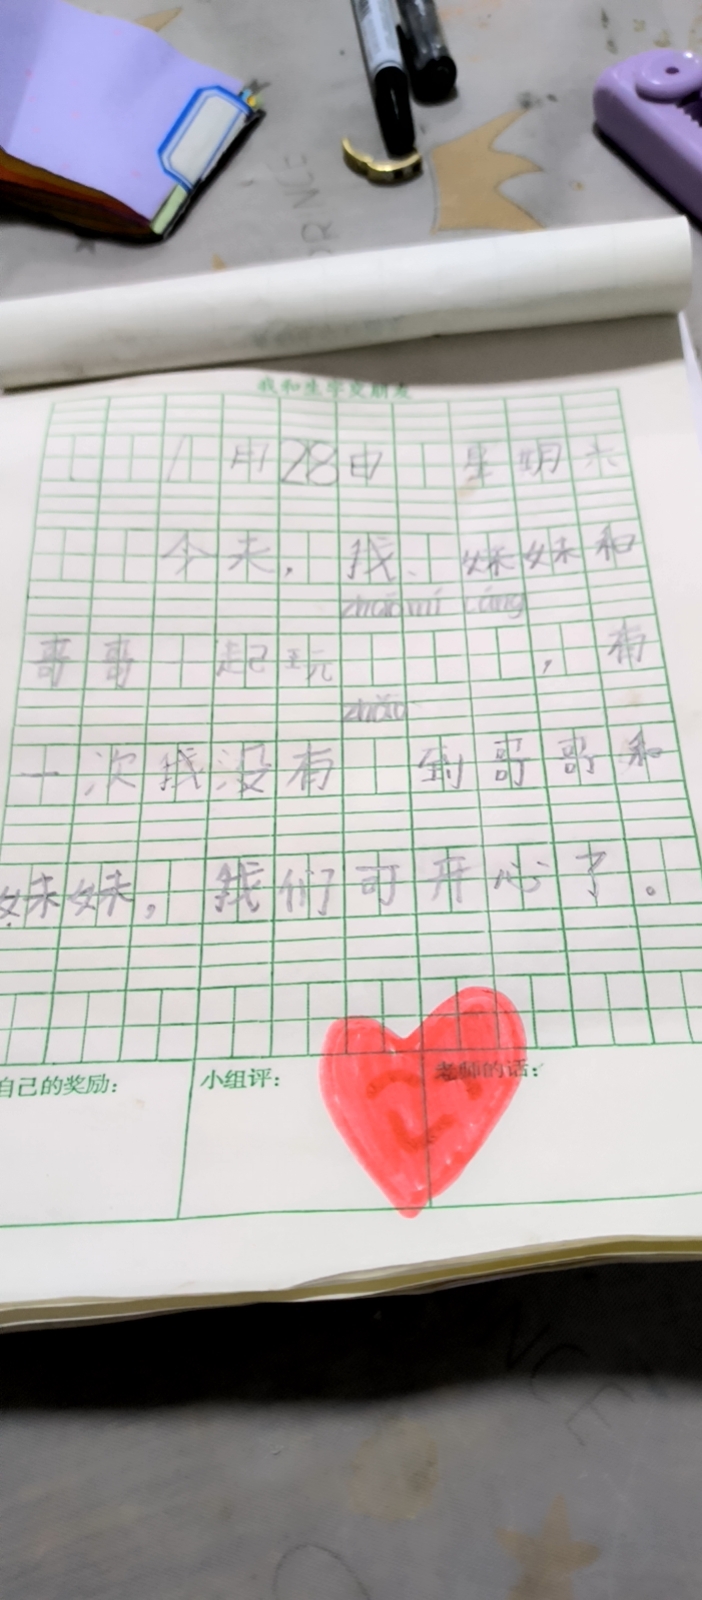 我和生字交朋友
1月28日 星期六
今天，我、妹妹和
zhuō mí cáng
哥哥一起玩 ，有
zhǎo
一次我没有 到哥哥和
妹妹，我们可开心了。
自己的奖励： 小组评： 老师的话：